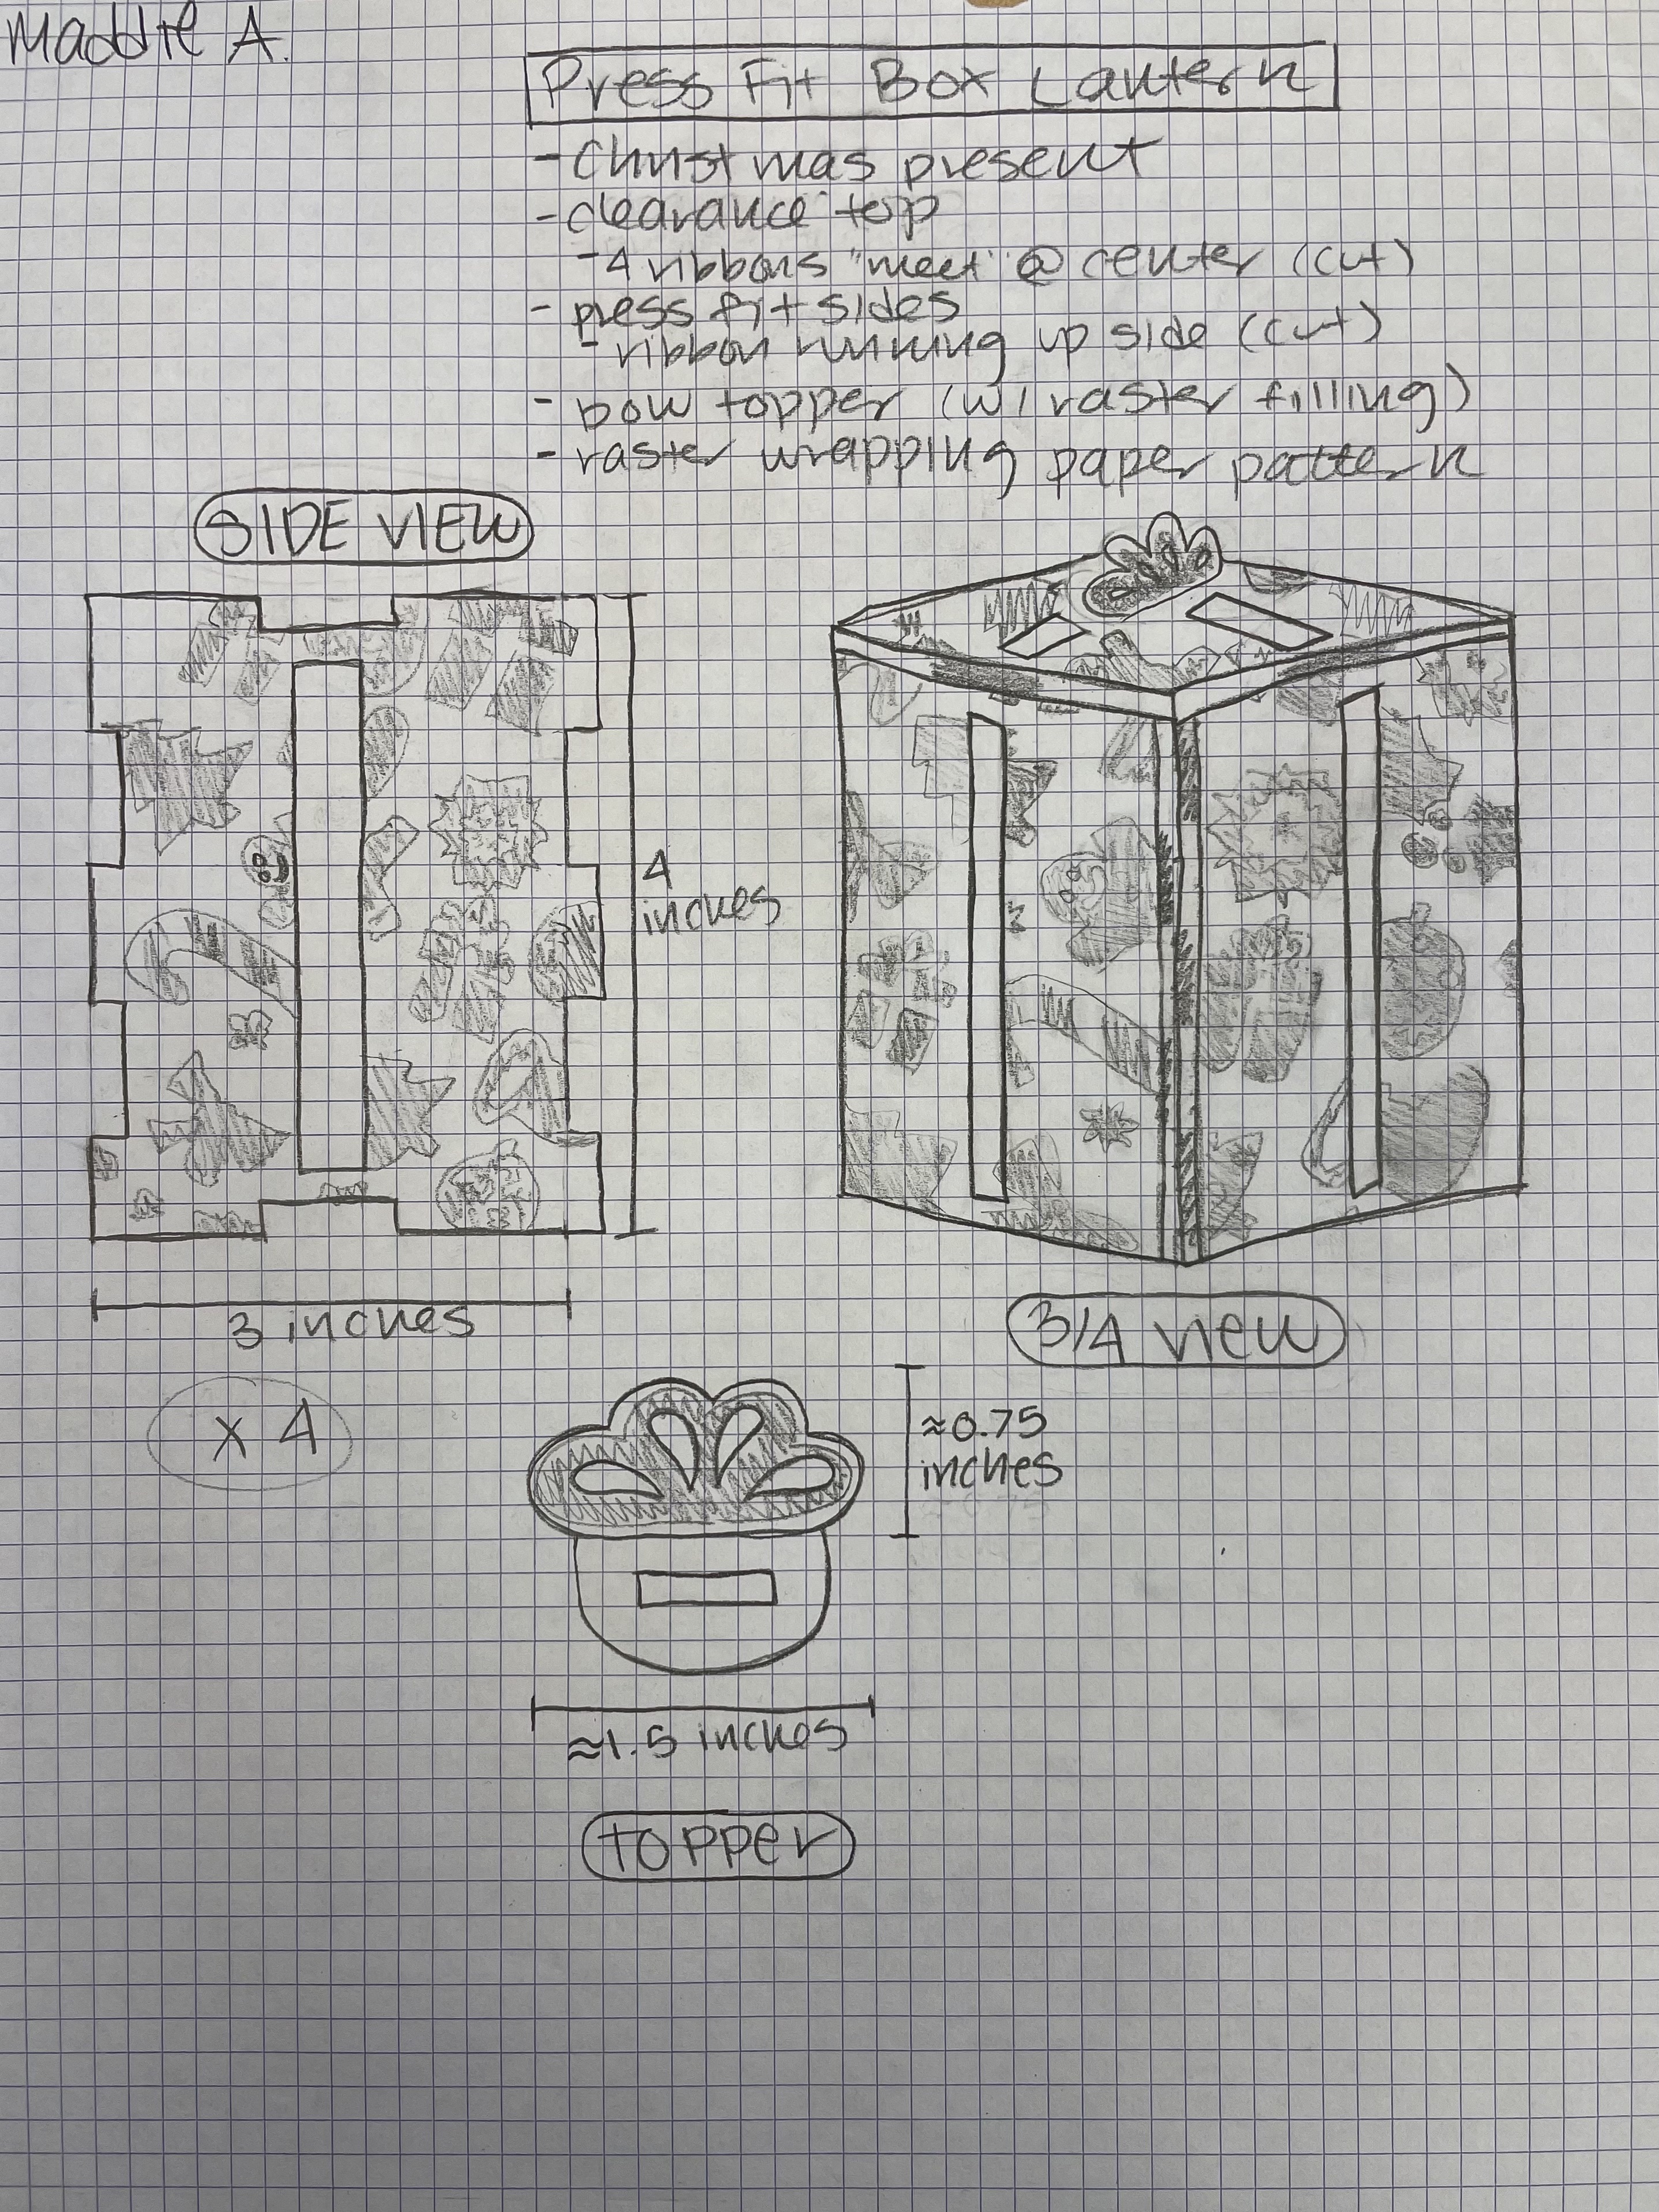 Maddie A.
Press Fit Box Lantern
- Christmas present
- clearance top
- 4 ribbons "meet" @ center (cut)
- press fit sides
- ribbon running up side (cut)
- bow topper (w/ raster filling)
- raster wrapping paper pattern
SIDE VIEW
4
inches
3 inches
3/4 view
x 4
≈0.75
inches
≈1.5 inches
topper